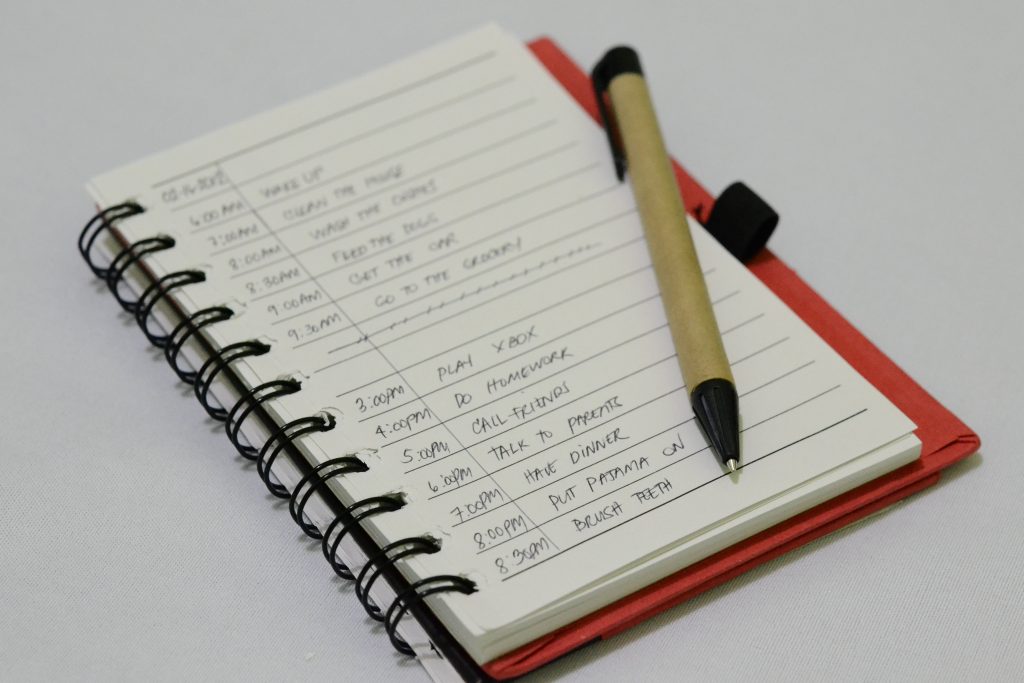 02-16-2012
6:00AM WAKE UP
7:00AM CLEAN THE HOUSE
8:00AM WASH THE DISHES
8:30AM FEED THE DOGS
9:00AM GET THE CAR
9:30AM GO TO THE GROCERY
3:00PM PLAY XBOX
4:00PM DO HOMEWORK
5:00PM CALL FRIENDS
6:00PM TALK TO PARENTS
7:00PM HAVE DINNER
8:00PM PUT PAJAMA ON
8:30PM BRUSH TEETH